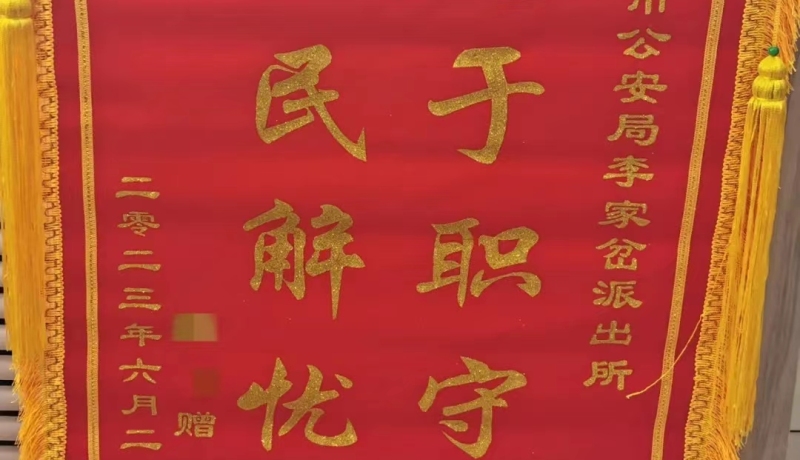 川公安局李家岔派出所
于职守
民解忧
赠
二零二三年六月二